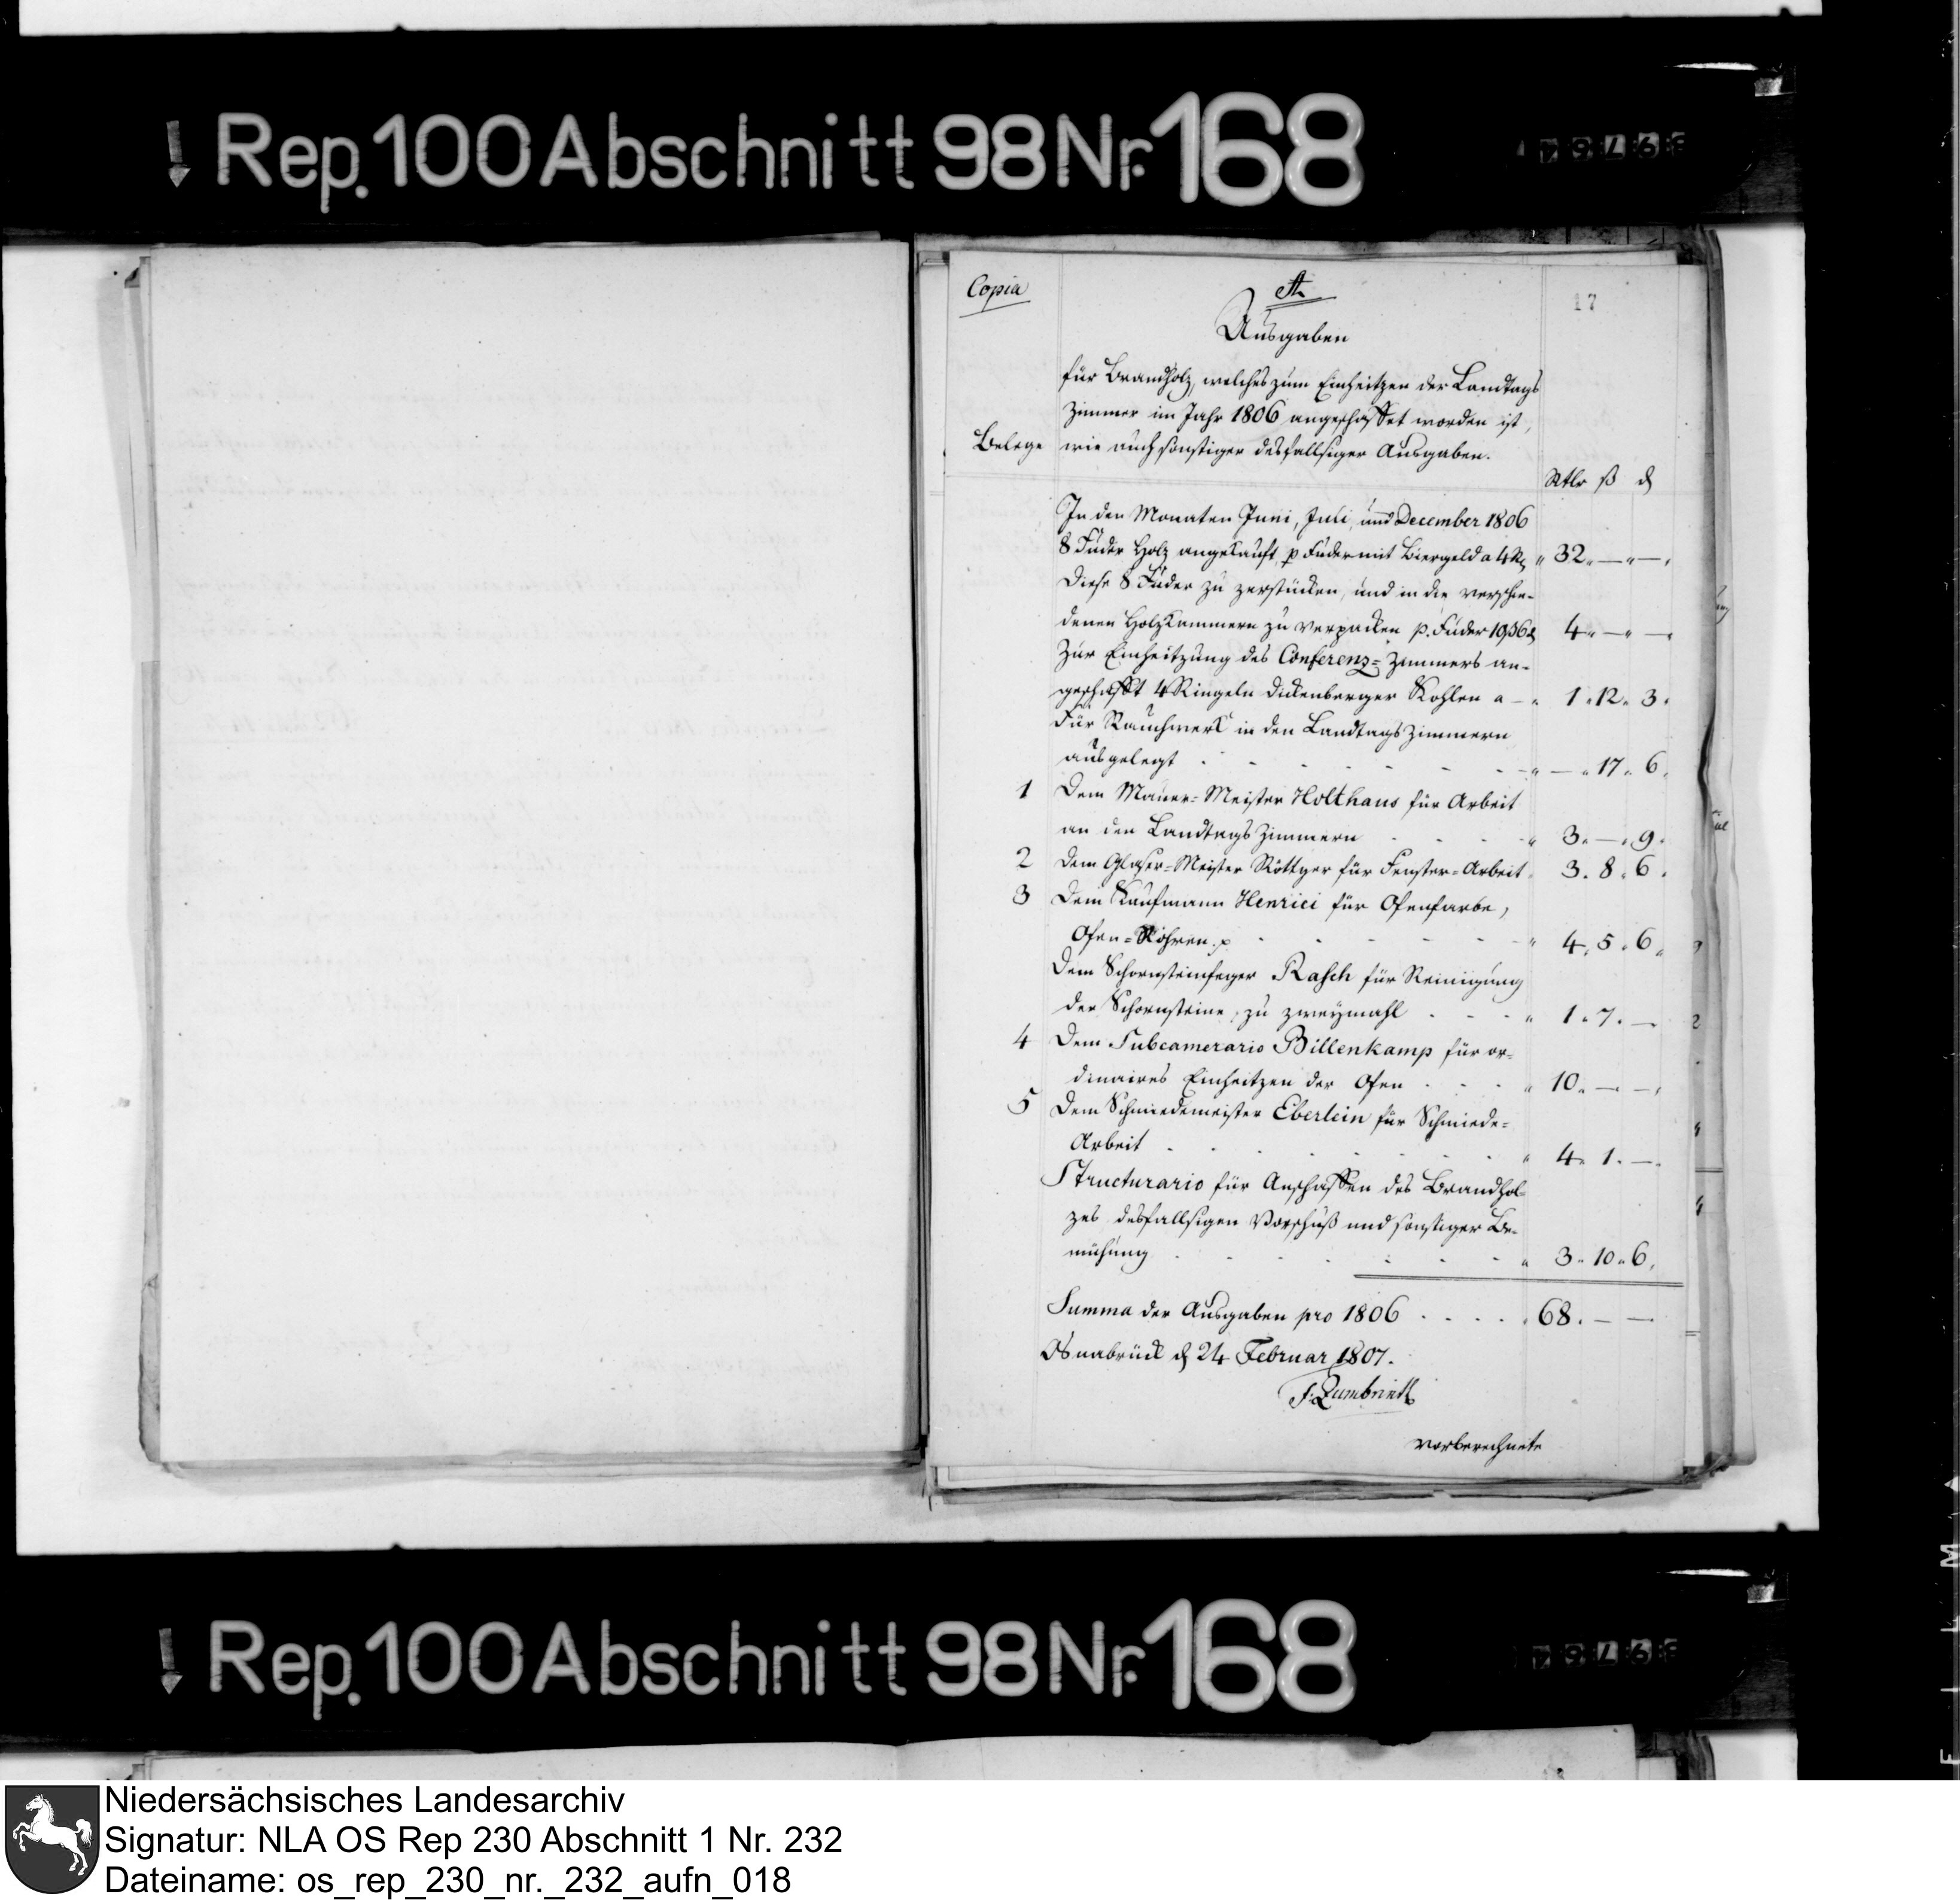 Rep. 100 Abschnitt 98 Nr. 168
Copia
A
17
Ausgaben
für Brandholz, welches zum Einheitzen der Landtags
Zimmer im Jahr 1806 angeschaffet worden ist,
Belege wie auch sonstiger desfallsiger Ausgaben.
Rtlr ß d
In den Monaten Juni, Juli, und December 1806
8 Fuder Holz angekauft, p Fuder mit Biergeld a 4 R " 32. — " —
Diese 8 Fuder zu zerstücken, und in die verschie-
denen Holzkammern zu verpacken p. Fuder 10ß6d 4 " — " —
Zur Einheitzung des Conferenz-Zimmers an-
geschafft 4 Ringeln Dickenberger Kohlen a — " 1 " 12 " 3
Für Rauchwerk in den Landtags Zimmern
ausgelegt — " — " 17 " 6
1 Dem Mauer-Meister Holthaus für Arbeit
an den Landtags Zimmern " 3. — " 9
2 Dem Glaser-Meister Röttger für Fenster-Arbeit 3. 8. 6.
3 Dem Kaufmann Henrici für Ofenfarbe,
Ofen-Röhren. p " 4. 5. 6
Dem Schornsteinfeger Rasch für Reinigung
der Schornsteine, zu zweymahl " 1. 7. —
4 Dem Subcamerario Billenkamp für or-
dinaires Einheitzen der Ofen " 10. — —
5 Dem Schmiedemeister Eberlein für Schmiede-
Arbeit " 4. 1. —
Structurario für Anschaffen des Brandhol-
zes desfallsigen Vorschuß und sonstiger Be-
mühung " 3. 10. 6.
Summa der Ausgaben pro 1806 . . . . . 68. — —
Osnabrück d 24 Februar 1807.
vorberechnete
Rep. 100 Abschnitt 98 Nr. 168
Niedersächsisches Landesarchiv
Signatur: NLA OS Rep 230 Abschnitt 1 Nr. 232
Dateiname: os_rep_230_nr._232_aufn_018